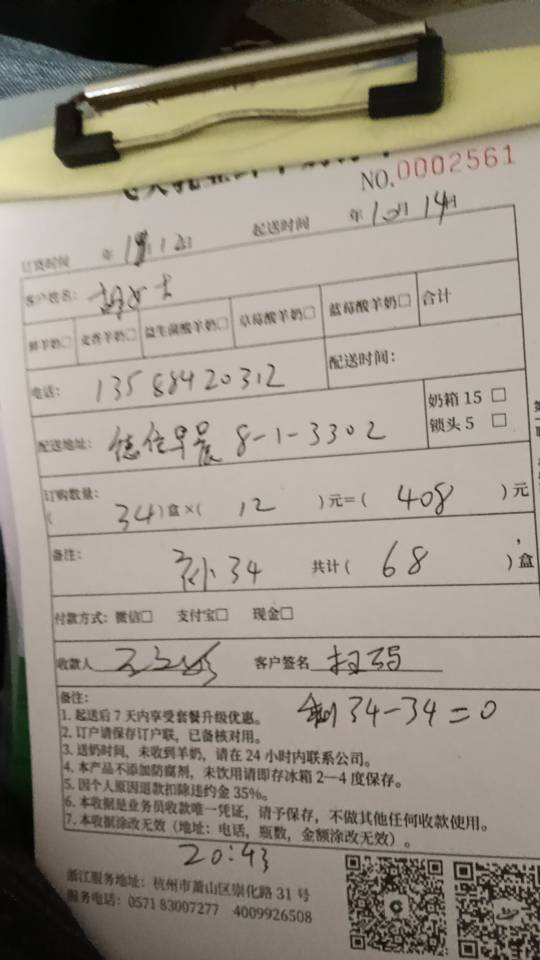 NO.0002561
订货时间 年 起送时间 年10月14日
客户姓名：
鲜羊奶□ 麦香羊奶□ 益生菌酸羊奶□ 草莓酸羊奶□ 蓝莓酸羊奶□ 合计
电话： 13588420312 配送时间：
配送地址： 德信早晨 8-1-3302 奶箱 15 □
锁头 5 □
订购数量：
( 34 )盒×( 12 )元=( 408 )元
备注： 34 共计( 68 )盒
付款方式：微信□ 支付宝□ 现金□
收款人 客户签名 扫码
剩34-34=0
备注：
1. 起送后 7 天内享受套餐升级优惠。
2. 订户请保存订户联，已备核对用。
3. 送奶时间，未收到羊奶，请在 24 小时内联系公司。
4. 本产品不添加防腐剂，未饮用请即存冰箱 2—4 度保存。
5. 因个人原因退款扣除违约金 35%。
6. 本收据是业务员收款唯一凭证，请予保存，不做其他任何收款使用。
7. 本收据涂改无效（地址：电话，瓶数，金额涂改无效）。
20:43
浙江服务地址：杭州市萧山区崇化路 31 号
服务电话：0571 83007277 4009926508